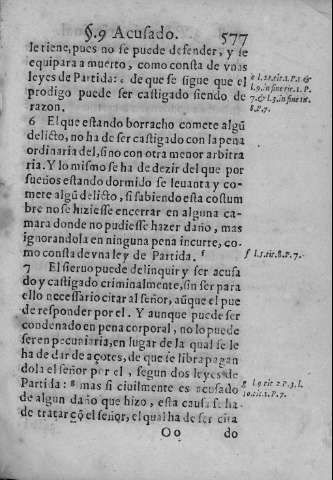 §.9 Acusado. 577
le tiene, pues no se puede defender, y se
equipara a muerto, como consta de vnas
leyes de Partida: e de que se sigue que el
prodigo puede ser castigado siendo de
razon.
6 El que estando borracho comete algũ
delicto, no ha de ser castigado con la pena
ordinaria del, sino con otra menor arbitra
ria. Y lo mismo se ha de dezir del que por
sueños estando dormido se leuanta y co-
mete algũ delicto, si sabiendo esta costum
bre no se hiziesse encerrar en alguna ca-
mara donde no pudiesse hazer daño, mas
ignorandola en ninguna pena incurre, co-
mo consta de vna ley de Partida. f
7 El sieruo puede delinquir y ser acusa
do y castigado criminalmente, sin ser para
ello necessario citar al señor, aũque el pue
de responder por el. Y aunque puede ser
condenado en pena corporal, no lo puede
ser en pecuniaria, en lugar de la qual se le
ha de dar de açotes, de que se libra pagan
dola el señor por el, segun dos leyes de
Partida: g mas si ciuilmente es acusado
de algun daño que hizo, esta causa se ha
de tratar cõ el señor, el qual ha de ser cita
Oo do
8.P.7.
f l.5.tit.8.P.7.